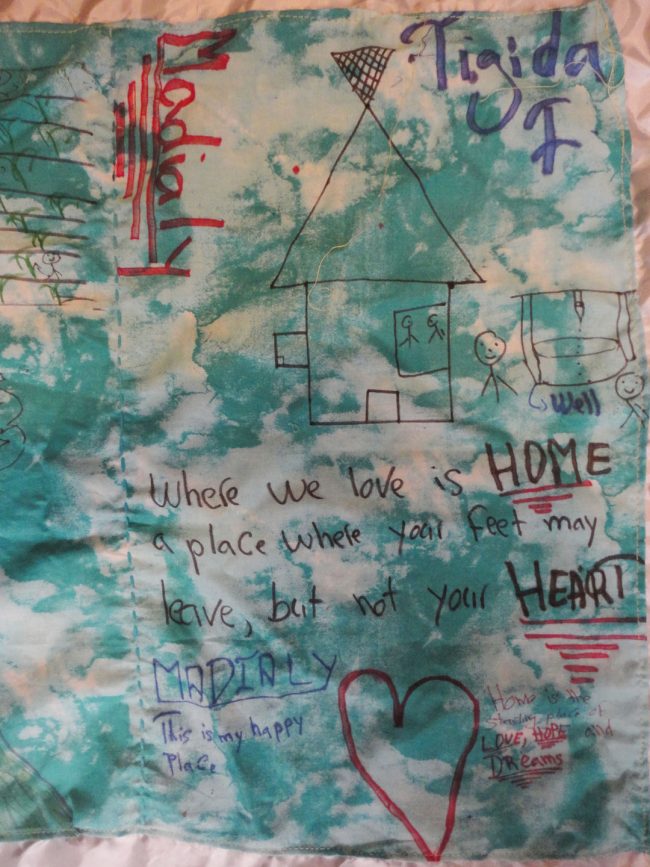 Madialy
Tigida
I
Well
Where we love is HOME
a place where your feet may
leave, but not your HEART
MADIALY
This is my happy
Place
Home is the
starting place of
LOVE, HOPE and
DReams